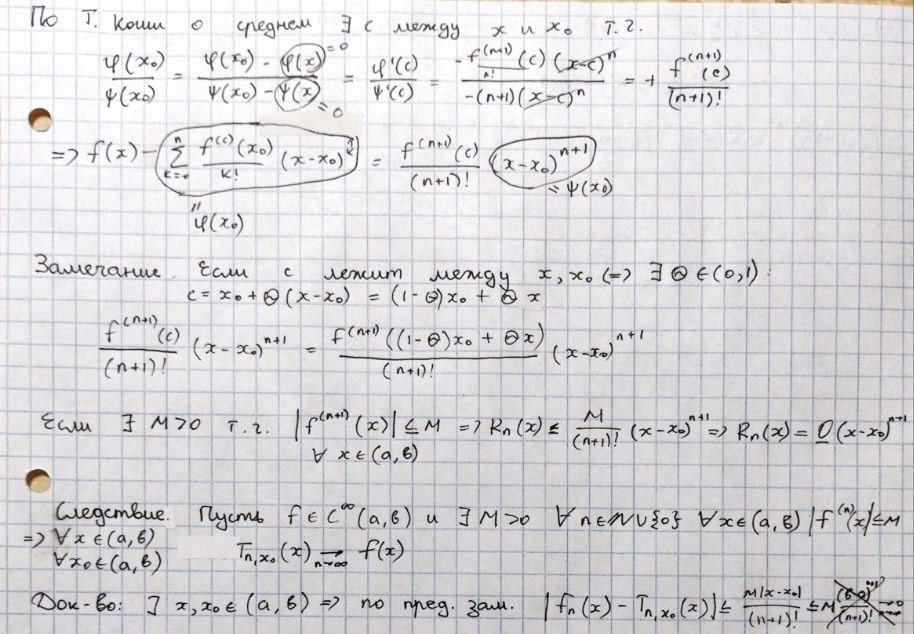 По Т. Коши о среднем ∃ c между x и x₀ т.г.
φ(x₀)/ψ(x₀) = (φ(x₀) - φ(x))/(ψ(x₀) - ψ(x)) = φ'(c)/ψ'(c) = (-f⁽ⁿ⁺¹⁾(c)/n! (x-c)ⁿ)/(-(n+1)(x-c)ⁿ) = + f⁽ⁿ⁺¹⁾(c)/(n+1)!
=0
=0
=> f(x) - ∑ₖ₌₀ⁿ f⁽ᶜ⁾(x₀)/k! (x-x₀)ᵏ = f⁽ⁿ⁺¹⁾(c)/(n+1)! (x-x₀)ⁿ⁺¹
= ψ(x₀)
" φ(x₀)
Замечание. Если c лежит между x, x₀ (=> ∃ Θ ∈ (0,1):
c = x₀ + Θ(x-x₀) = (1-Θ)x₀ + Θx
f⁽ⁿ⁺¹⁾(c)/(n+1)! (x-x₀)ⁿ⁺¹ = f⁽ⁿ⁺¹⁾((1-Θ)x₀ + Θx)/(n+1)! (x-x₀)ⁿ⁺¹
Если ∃ M>0 т.г. |f⁽ⁿ⁺¹⁾(x)| ≤ M => Rₙ(x) ≤ M/(n+1)! (x-x₀)ⁿ⁺¹ => Rₙ(x) = O(x-x₀)ⁿ⁺¹
∀ x ∈ (a,b)
Следствие. Пусть f ∈ C^∞(a,b) и ∃ M>0 ∀ n ∈ N∪{0} ∀ x ∈ (a,b) |f⁽ⁿ⁾(x)| ≤ M
=> ∀ x ∈ (a,b)
∀ x₀ ∈ (a,b) Tₙ,ₓ₀(x) →ₙ→∞ f(x)
Док-во: ∃ x, x₀ ∈ (a,b) => по пред. зам. |fₙ(x) - Tₙ,ₓ₀(x)| ≤ M|x-x₀|/(n+1)! ≤ M